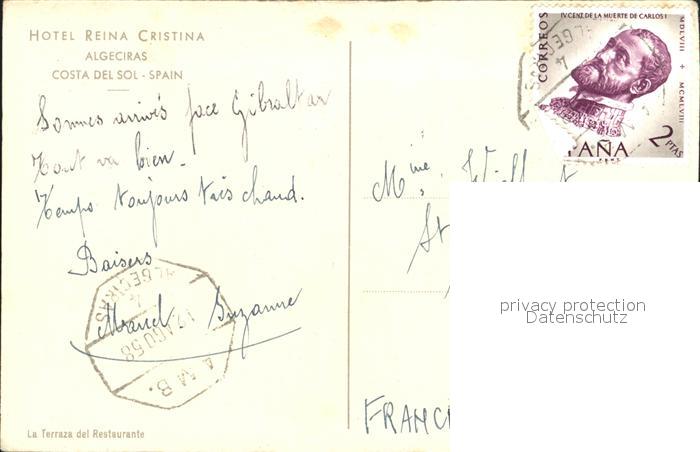 HOTEL REINA CRISTINA
ALGECIRAS
COSTA DEL SOL - SPAIN
Sommes arrivés face Gibraltar
Tout va bien -
Temps toujours très chaud.
Baisers
Suzanne
La Terraza del Restaurante
ALGECIRAS
4
17 AGU 58
AMB.
CORREOS
IV CENT. DE LA MUERTE DE CARLOS I
MDLVIII + MCMLVIII
2 PTAS
PAÑA
Mme
St
FRANC
privacy protection
Datenschutz